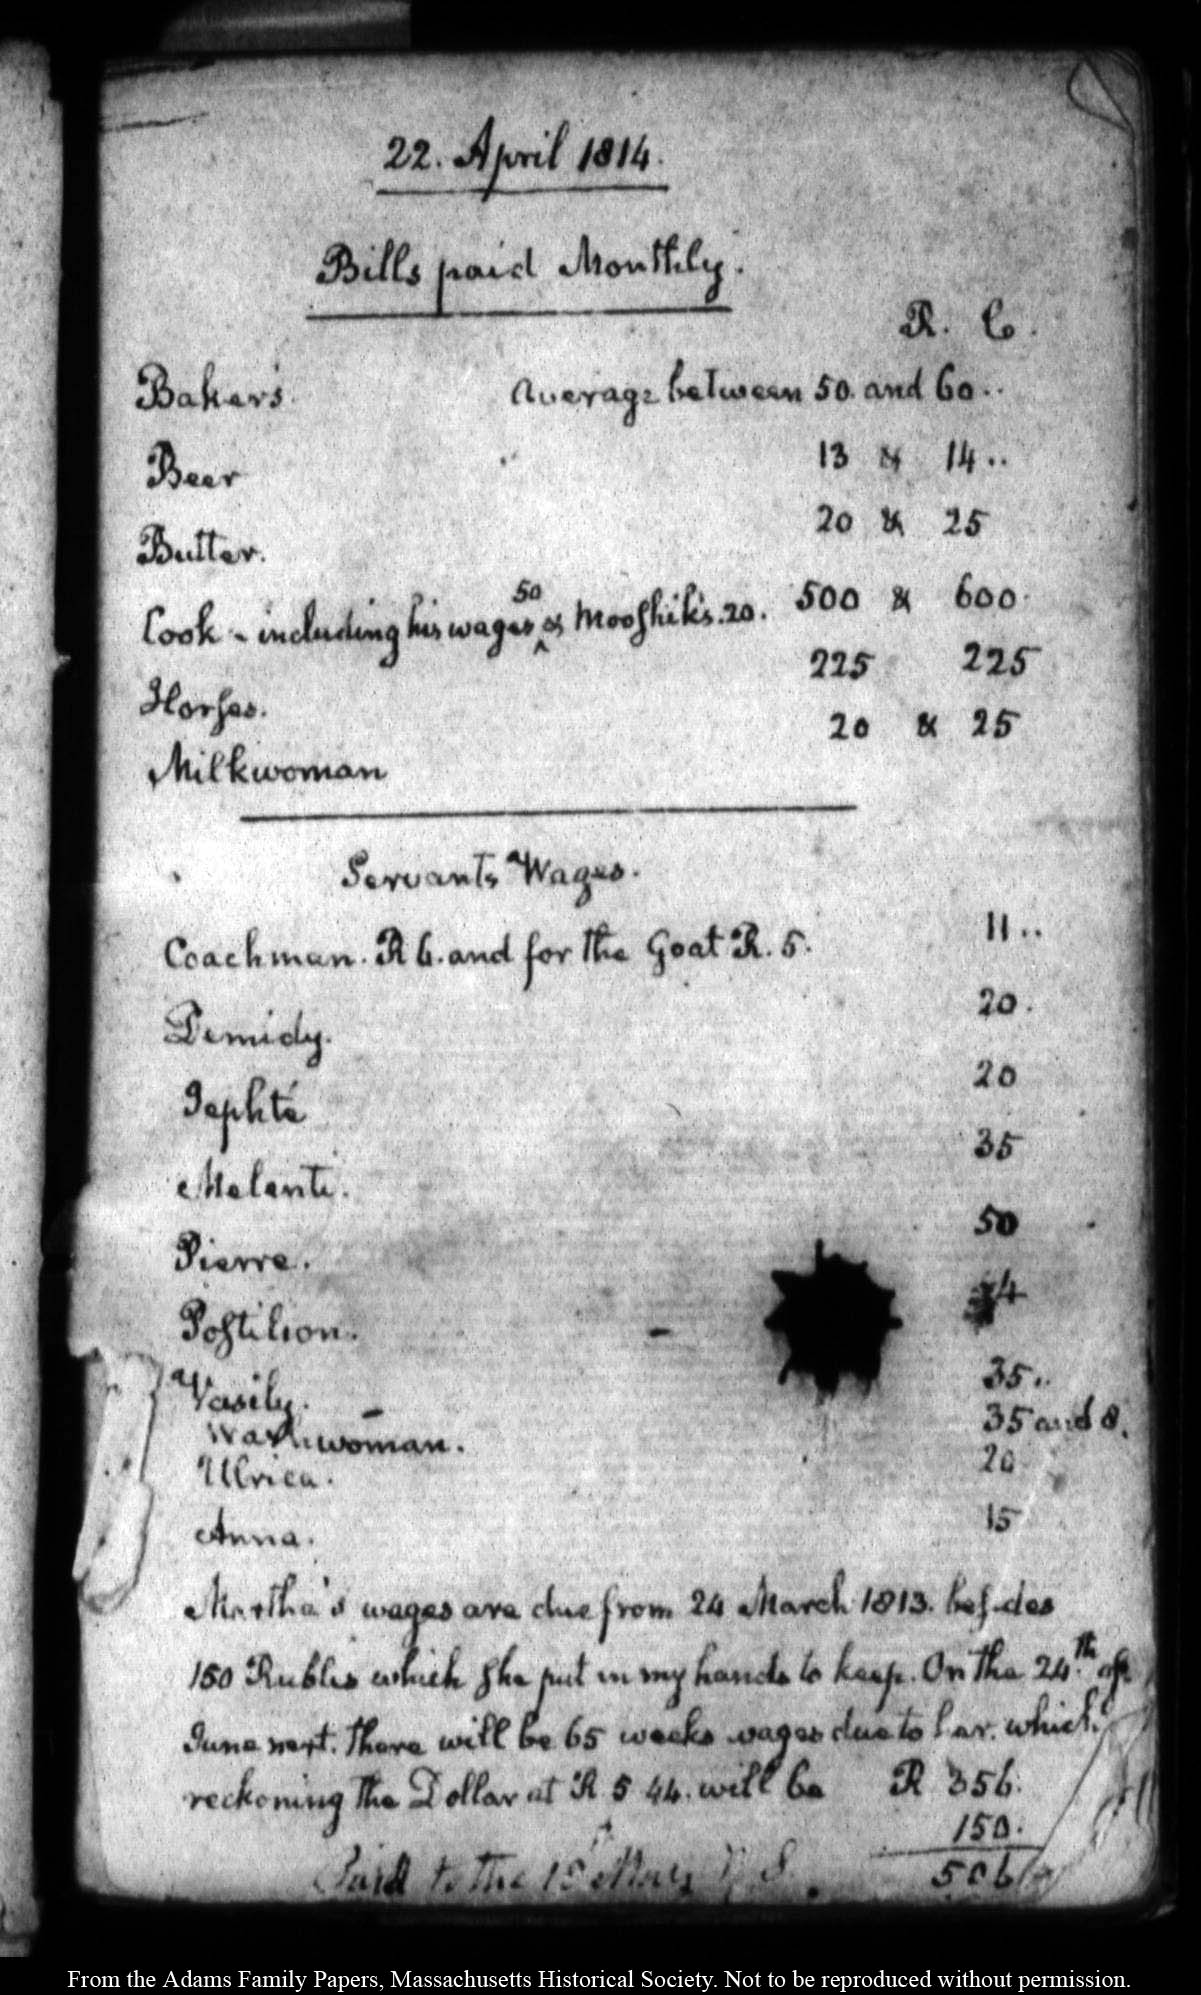 22. April 1814.
Bills paid Monthly.
R. C.
Baker's. Average between 50. and 60..
Beer 13 & 14..
Butter. 20 & 25
Cook - including his wages 50 & Mooshik's. 20. 500 & 600.
Horses. 225 225
Milkwoman 20 & 25
Servants Wages.
Coachman. R 6. and for the Goat R. 5. 11..
Demidy. 20.
Jephté 20
Melanti. 35
Pierre. 50
Postilion. - 4
Vasily. 35..
Washwoman. 35 and 8.
Ulrica. 20
Anna. 15
Martha's wages are due from 24 March 1813. besides
150 Rubles which she put in my hands to keep. On the 24.th of
June next. there will be 65 weeks wages due to her. which
reckoning the Dollar at R 5 44. will be R 356.
150.
Paid to the May 506
From the Adams Family Papers, Massachusetts Historical Society. Not to be reproduced without permission.